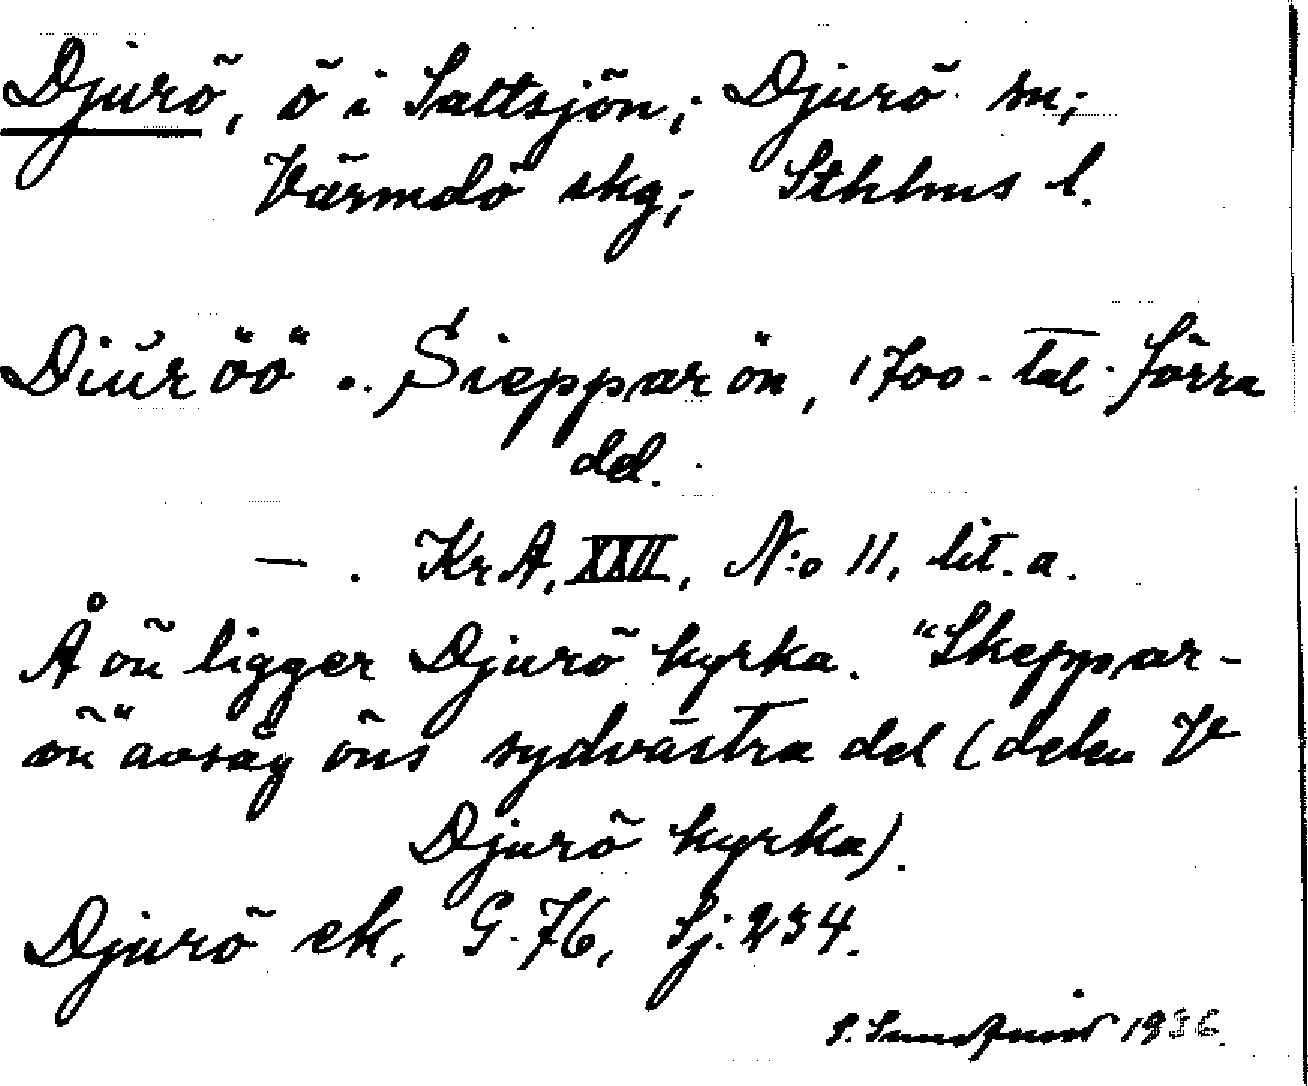 Djurö, ö i Saltsjön; Djurö sn;
Värmdö skg; Sthlms l.
Diŭr öö .. Siepparön, 1700-tal. förra
del.
— . Kr A, XXII, N:o 11, lit. a.
Å ön ligger Djurö kyrka. "Skeppar-
ön" avsåg öns sydvästra del (delen V
Djurö kyrka).
Djurö ek. G. 76, Sj. 234.
1936.